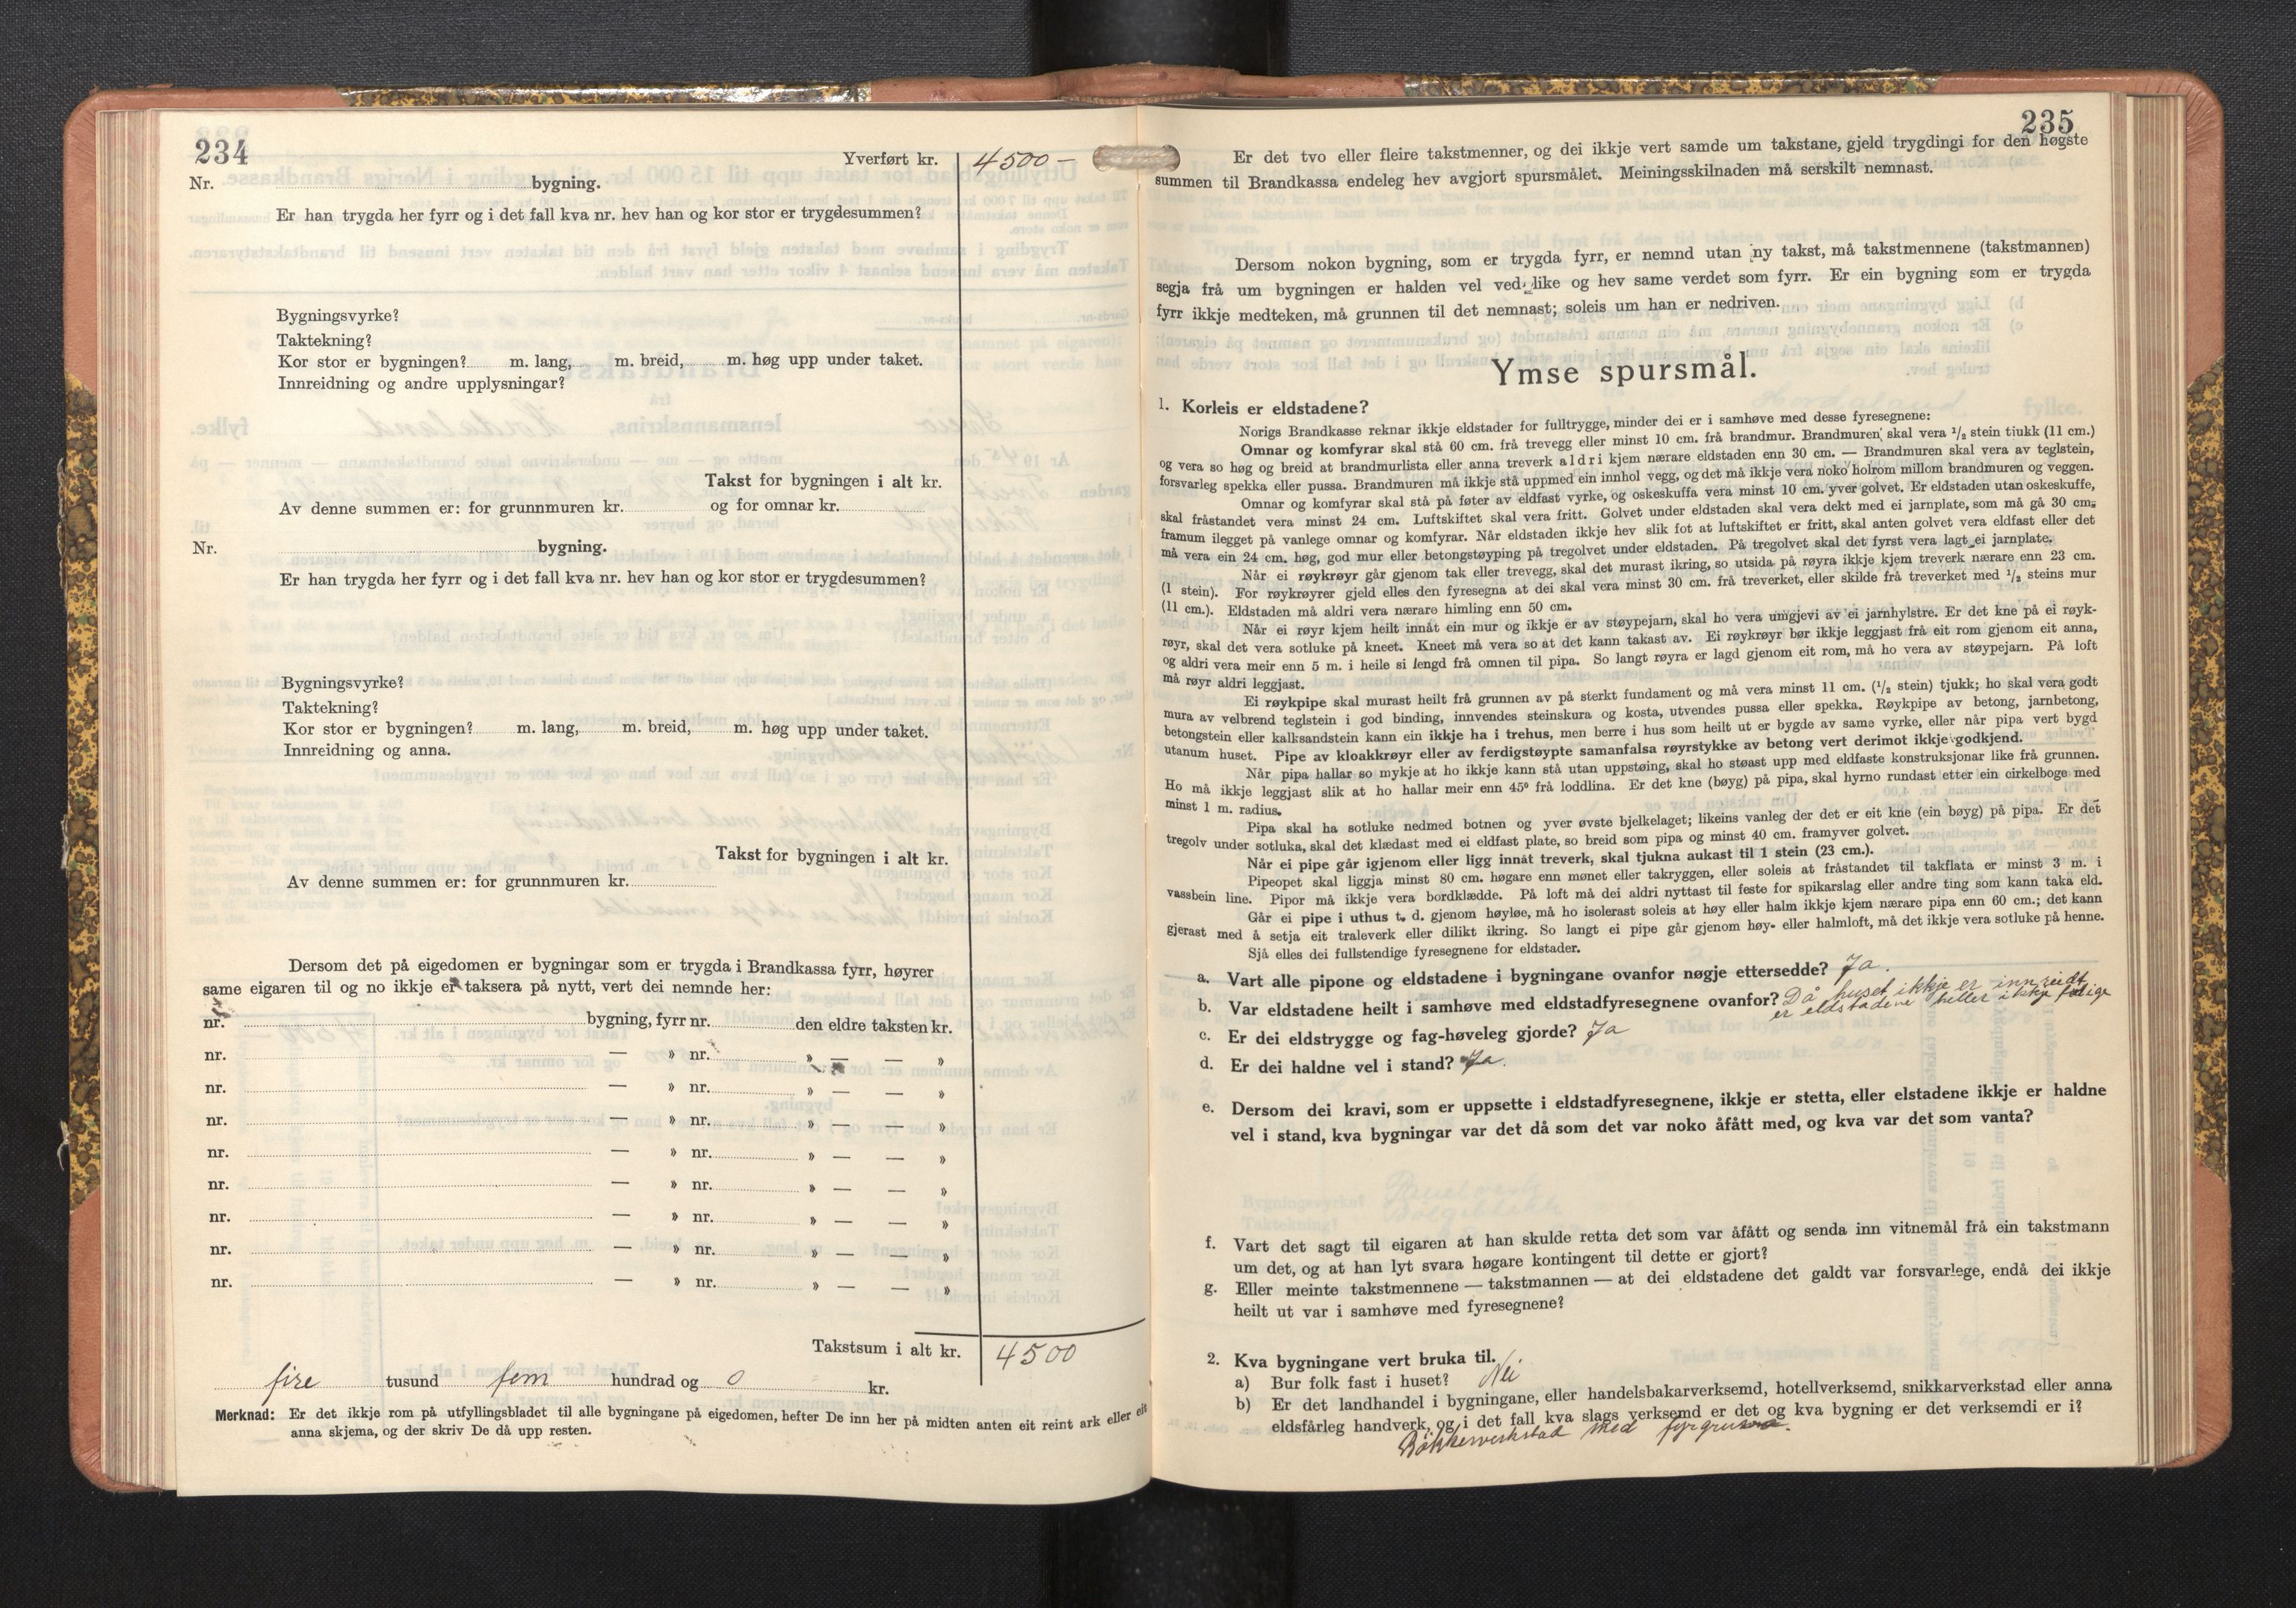 234
Yverført kr. 4500 –
Nr. bygning.
Er han trygda her fyrr og i det fall kva nr. hev han og kor stor er trygdesummen?
Bygningsvyrke?
Taktekning?
Kor stor er bygningen? m. lang, m. breid, m. høg upp under taket.
Innreidning og andre upplysningar?
Takst for bygningen i alt kr.
Av denne summen er: for grunnmuren kr. og for omnar kr.
Nr. bygning.
Er han trygda her fyrr og i det fall kva nr. hev han og kor stor er trygdesummen?
Bygningsvyrke?
Taktekning?
Kor stor er bygningen? m. lang, m. breid, m. høg upp under taket.
Innreidning og anna.
Takst for bygningen i alt kr.
Av denne summen er: for grunnmuren kr.
Dersom det på eigedomen er bygningar som er trygda i Brandkassa fyrr, høyrer
same eigaren til og no ikkje er taksera på nytt, vert dei nemnde her:
nr. bygning, fyrr nr. den eldre taksten kr.
nr. — » nr. » — — »
nr. — » nr. » — — »
nr. — » nr. » — — »
nr. — » nr. » — — »
nr. — » nr. » — — »
nr. — » nr. » — — »
nr. — » nr. » — — »
nr. — » nr. » — — »
Takstsum i alt kr. 4500
fire tusund fem hundrad og 0 kr.
Merknad: Er det ikkje rom på utfyllingsbladet til alle bygningane på eigedomen, hefter De inn her på midten anten eit reint ark eller eit
anna skjema, og der skriv De då upp resten.
235
Er det tvo eller fleire takstmenner, og dei ikkje vert samde um takstane, gjeld trygdingi for den høgste
summen til Brandkassa endeleg hev avgjort spursmålet. Meiningsskilnaden må serskilt nemnast.
Dersom nokon bygning, som er trygda fyrr, er nemnd utan ny takst, må takstmennene (takstmannen)
segja frå um bygningen er halden vel ved like og hev same verdet som fyrr. Er ein bygning som er trygda
fyrr ikkje medteken, må grunnen til det nemnast; soleis um han er nedriven.
Ymse spursmål.
1. Korleis er eldstadene?
Norigs Brandkasse reknar ikkje eldstader for fulltrygge, minder dei er i samhøve med desse fyresegnene:
Omnar og komfyrar skal stå 60 cm. frå trevegg eller minst 10 cm. frå brandmur. Brandmuren skal vera 1/2 stein tiukk (11 cm.)
og vera so høg og breid at brandmurlista eller anna treverk aldri kjem nærare eldstaden enn 30 cm. — Brandmuren skal vera av teglstein,
forsvarleg spekka eller pussa. Brandmuren må ikkje stå uppmed ein innhol vegg, og det må ikkje vera noko holrom millom brandmuren og veggen.
Omnar og komfyrar skal stå på føter av eldfast vyrke, og oskeskuffa vera minst 10 cm. yver golvet. Er eldstaden utan oskeskuffe,
skal fråstandet vera minst 24 cm. Luftskiftet skal vera fritt. Golvet under eldstaden skal vera dekt med ei jarnplate, som må gå 30 cm.
framum ilegget på vanlege omnar og komfyrar. Når eldstaden ikkje hev slik fot at luftskiftet er fritt, skal anten golvet vera eldfast eller det
må vera ein 24 cm. høg, god mur eller betongstøyping på tregolvet under eldstaden. På tregolvet skal det fyrst vera lagt ei jarnplate.
Når ei røykrøyr går gjenom tak eller trevegg, skal det murast ikring, so utsida på røyra ikkje kjem treverk nærare enn 23 cm.
(1 stein). For røykrøyrer gjeld elles den fyresegna at dei skal vera minst 30 cm. frå treverket, eller skilde frå treverket med 1/2 steins mur
(11 cm.). Eldstaden må aldri vera nærare himling enn 50 cm.
Når ei røyr kjem heilt innåt ein mur og ikkje er av støypejarn, skal ho vera umgjevi av ei jarnhylstre. Er det kne på ei røyk-
røyr, skal det vera sotluke på kneet. Kneet må vera so at det kann takast av. Ei røykrøyr bør ikkje leggjast frå eit rom gjenom eit anna,
og aldri vera meir enn 5 m. i heile si lengd frå omnen til pipa. So langt røyra er lagd gjenom eit rom, må ho vera av støypejarn. På loft
må røyr aldri leggjast.
Ei røykpipe skal murast heilt frå grunnen av på sterkt fundament og må vera minst 11 cm. (1/2 stein) tjukk; ho skal vera godt
mura av velbrend teglstein i god binding, innvendes steinskura og kosta, utvendes pussa eller spekka. Røykpipe av betong, jarnbetong,
betongstein eller kalksandstein kann ein ikkje ha i trehus, men berre i hus som heilt ut er bygde av same vyrke, eller når pipa vert bygd
utanum huset. Pipe av kloakkrøyr eller av ferdigstøypte samanfalsa røyrstykke av betong vert derimot ikkje godkjend.
Når pipa hallar so mykje at ho ikkje kann stå utan uppstøing, skal ho støast upp med eldfaste konstruksjonar like frå grunnen.
Ho må ikkje leggjast slik at ho hallar meir enn 45° frå loddlina. Er det kne (bøyg) på pipa, skal hyrno rundast etter ein cirkelboge med
minst 1 m. radius.
Pipa skal ha sotluke nedmed botnen og yver øvste bjelkelaget; likeins vanleg der det er eit kne (ein bøyg) på pipa. Er det
tregolv under sotluka, skal det klædast med ei eldfast plate, so breid som pipa og minst 40 cm. framyver golvet.
Når ei pipe går igjenom eller ligg innåt treverk, skal tjukna aukast til 1 stein (23 cm.).
Pipeopet skal liggja minst 80 cm. høgare enn mønet eller takryggen, eller soleis at fråstandet til takflata er minst 3 m. i
vassbein line. Pipor må ikkje vera bordklædde. På loft må dei aldri nyttast til feste for spikarslag eller andre ting som kann taka eld.
Går ei pipe i uthus t. d. gjenom høyløe, må ho isolerast soleis at høy eller halm ikkje kjem nærare pipa enn 60 cm.; det kann
gjerast med å setja eit traleverk eller dilikt ikring. So langt ei pipe går gjenom høy- eller halmloft, må det ikkje vera sotluke på henne.
Sjå elles dei fullstendige fyresegnene for eldstader.
a. Vart alle pipone og eldstadene i bygningane ovanfor nøgje ettersedde? Ja.
b. Var eldstadene heilt i samhøve med eldstadfyresegnene ovanfor? Då huset ikkje er innreidt
er eldstadene heller ikkje farlige
c. Er dei eldstrygge og fag-høveleg gjorde? Ja
d. Er dei haldne vel i stand? Ja.
e. Dersom dei kravi, som er uppsette i eldstadfyresegnene, ikkje er stetta, eller elstadene ikkje er haldne
vel i stand, kva bygningar var det då som det var noko åfått med, og kva var det som vanta?
f. Vart det sagt til eigaren at han skulde retta det som var åfått og senda inn vitnemål frå ein takstmann
um det, og at han lyt svara høgare kontingent til dette er gjort?
g. Eller meinte takstmennene — takstmannen — at dei eldstadene det galdt var forsvarlege, endå dei ikkje
heilt ut var i samhøve med fyresegnene?
2. Kva bygningane vert bruka til.
a) Bur folk fast i huset? Nei
b) Er det landhandel i bygningane, eller handelsbakarverksemd, hotellverksemd, snikkarverkstad eller anna
eldsfårleg handverk, og i det fall kva slags verksemd er det og kva bygning er det verksemdi er i?
Bökkerverkstad med fyrgru